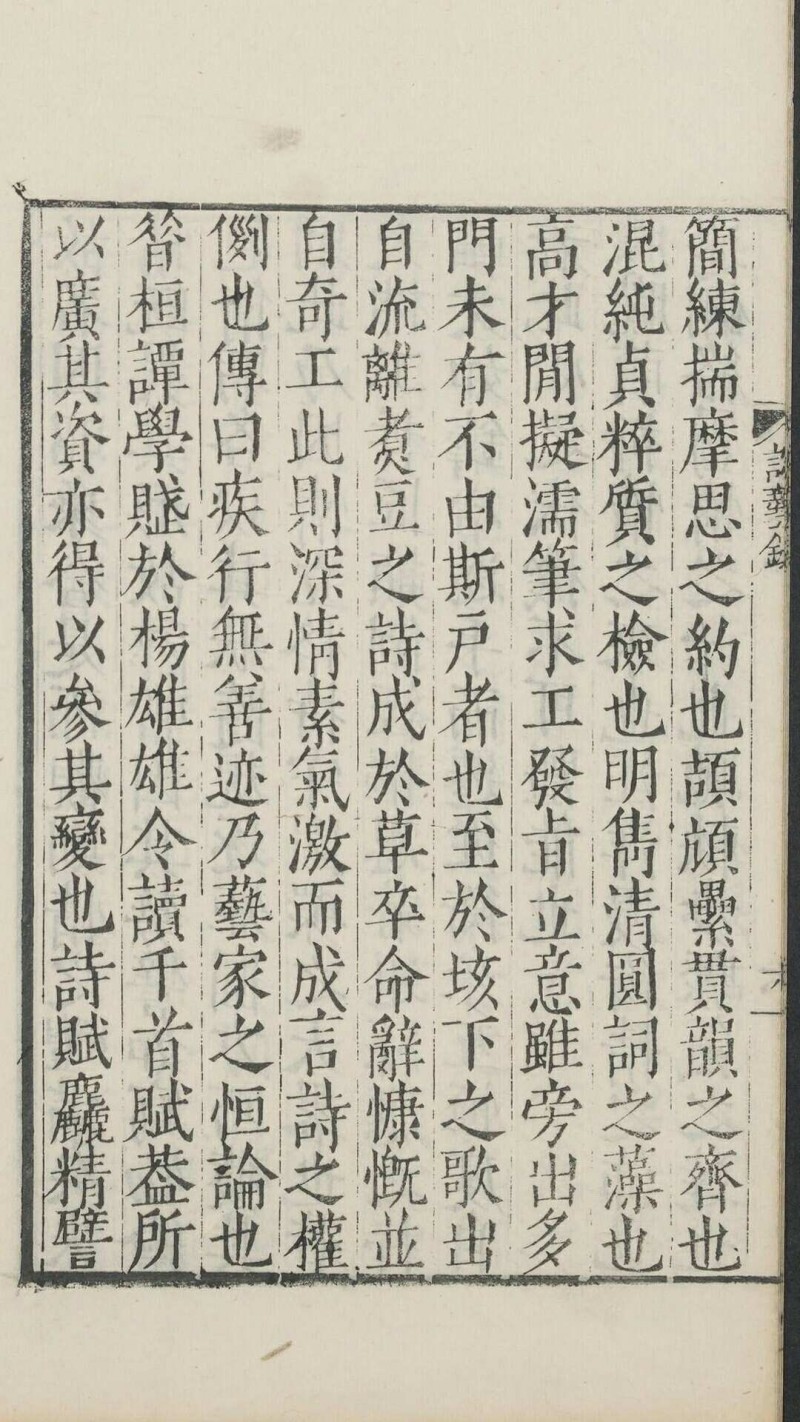 談藝錄
簡練揣摩思之約也頡頏纍貫韻之齊也
混純貞粹質之檢也明雋清圓詞之藻也
高才閒擬濡筆求工發㫖立意雖旁出多
門未有不由斯戸者也至於垓下之歌出
自流離煑豆之詩成於草卒命辭慷慨並
自奇工此則深情素氣激而成言詩之權
例也傳曰疾行無善迹乃藝家之恒論也
㫺桓譚學賦於楊雄雄令讀千首賦葢所
以廣其資亦得以參其變也詩賦麤精譬